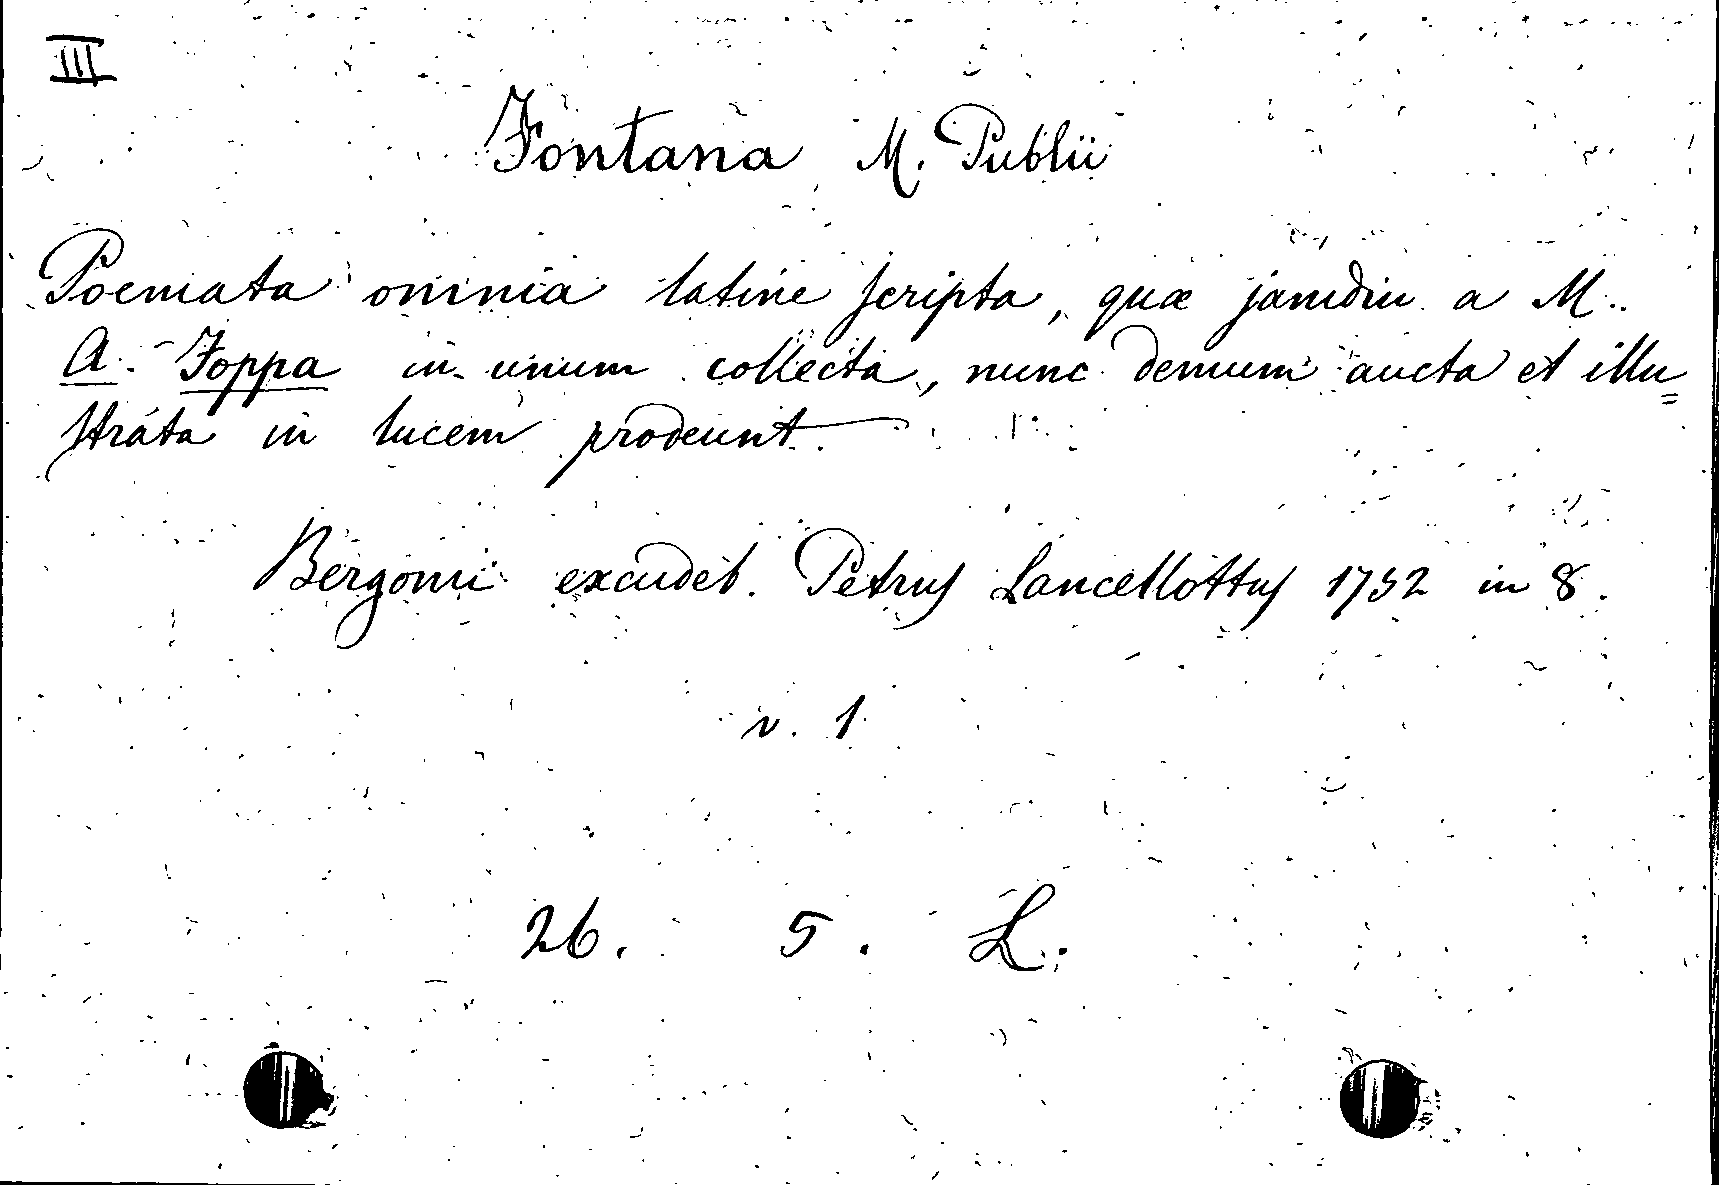 III
Fontana M. Publii
Poemata omnia latine scripta, quæ jamdiu a M.
A. Foppa in unum collecta, nunc demum aucta et illu=
strata in lucem prodeunt.
Bergomi excudeb. Petrus Lancellottus 1752 in 8.
v. 1
26. 5. L.